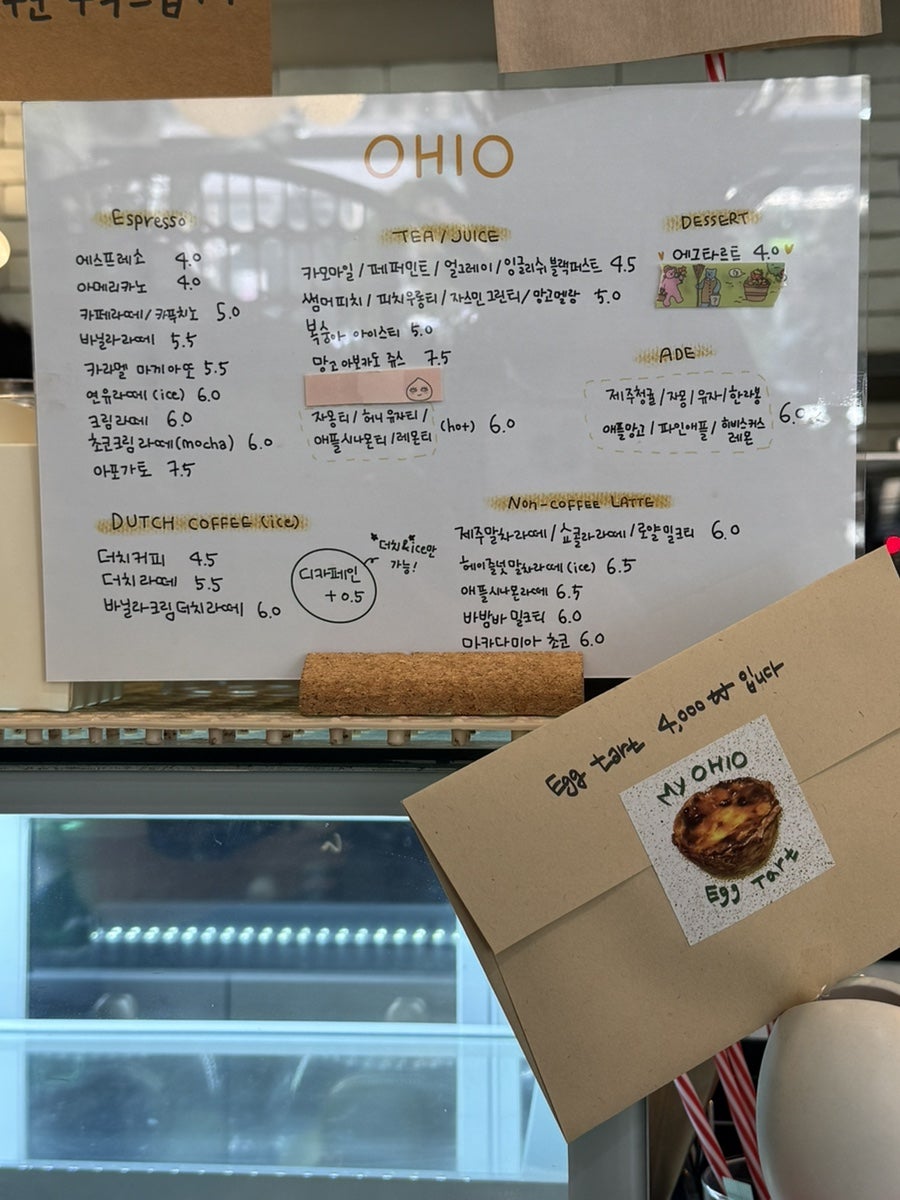 OHIO
Espresso
에스프레소 4.0
아메리카노 4.0
카페라떼/카푸치노 5.0
바닐라라떼 5.5
카라멜 마키아또 5.5
연유라떼(ice) 6.0
크림라떼 6.0
초코크림라떼(mocha) 6.0
아포가토 7.5
TEA/JUICE
카모마일/페퍼민트/얼그레이/잉글리쉬블랙퍼스트 4.5
썸머피치/피치우롱티/자스민그린티/망고멜랑 5.0
복숭아 아이스티 5.0
망고아보카도 쥬스 7.5
자몽티/허니유자티/
애플시나몬티/레몬티 (hot) 6.0
DESSERT
에그타르트 4.0
ADE
제주청귤/자몽/유자/한라봉
애플망고/파인애플/히비스커스 레몬
DUTCH COFFEE (ice)
더치커피 4.5
더치라떼 5.5
바닐라크림더치라떼 6.0
디카페인
+0.5
*더치&ice만
가능!
NON-COFFEE LATTE
제주말차라떼/쇼콜라라떼/로얄밀크티 6.0
헤이즐넛말차라떼(ice) 6.5
애플시나몬라떼 6.5
바밤바밀크티 6.0
마카다미아 초코 6.0
Egg tart 4,000₩ 입니다
MY OHIO
Egg Tart